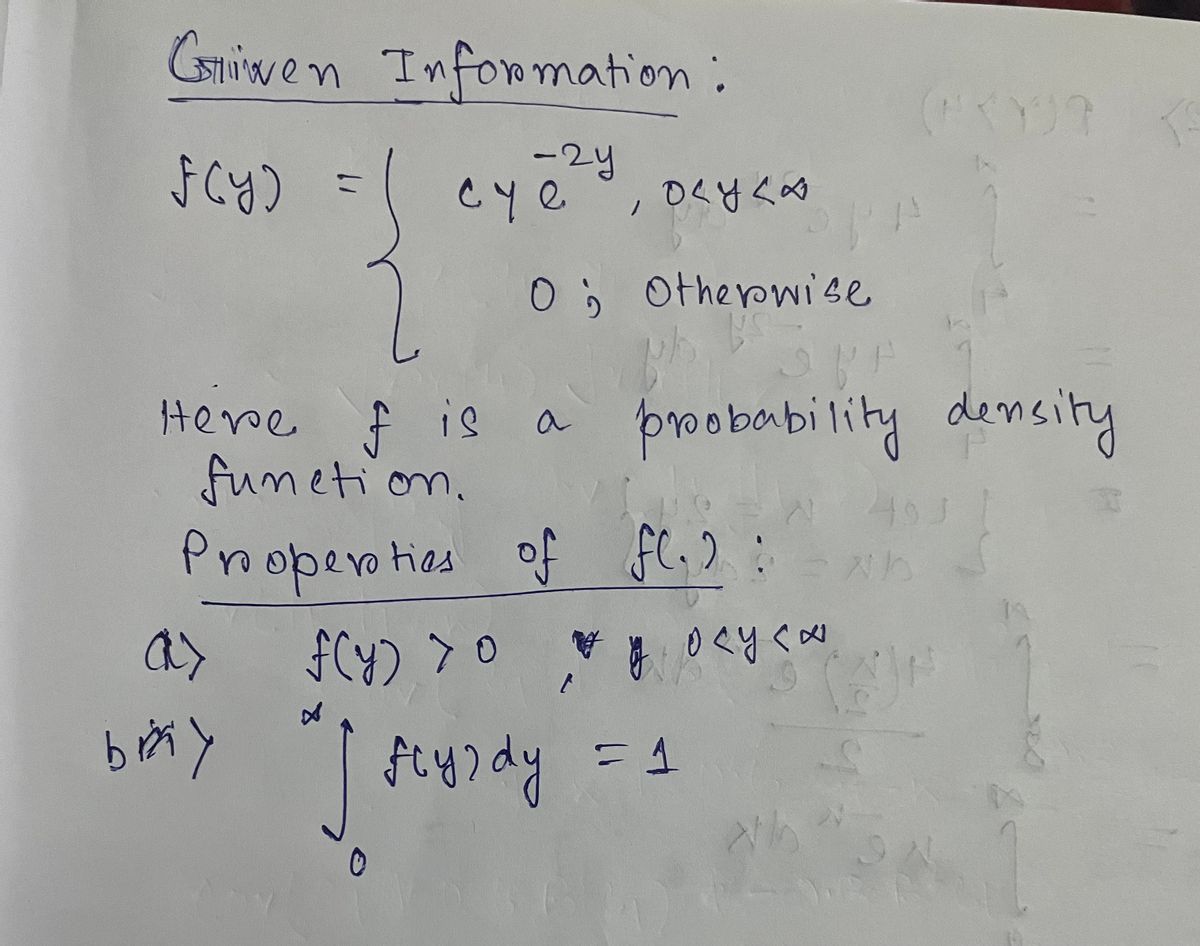 Given Information :
f(y) = { c y e^{-2y} , 0<y<∞
0 ; Otherwise
Here f is a probability density
function.
Properties of f(.) :
a> f(y) > 0 , ∀ y 0<y<∞
b> ∫_0^∞ f(y) dy = 1